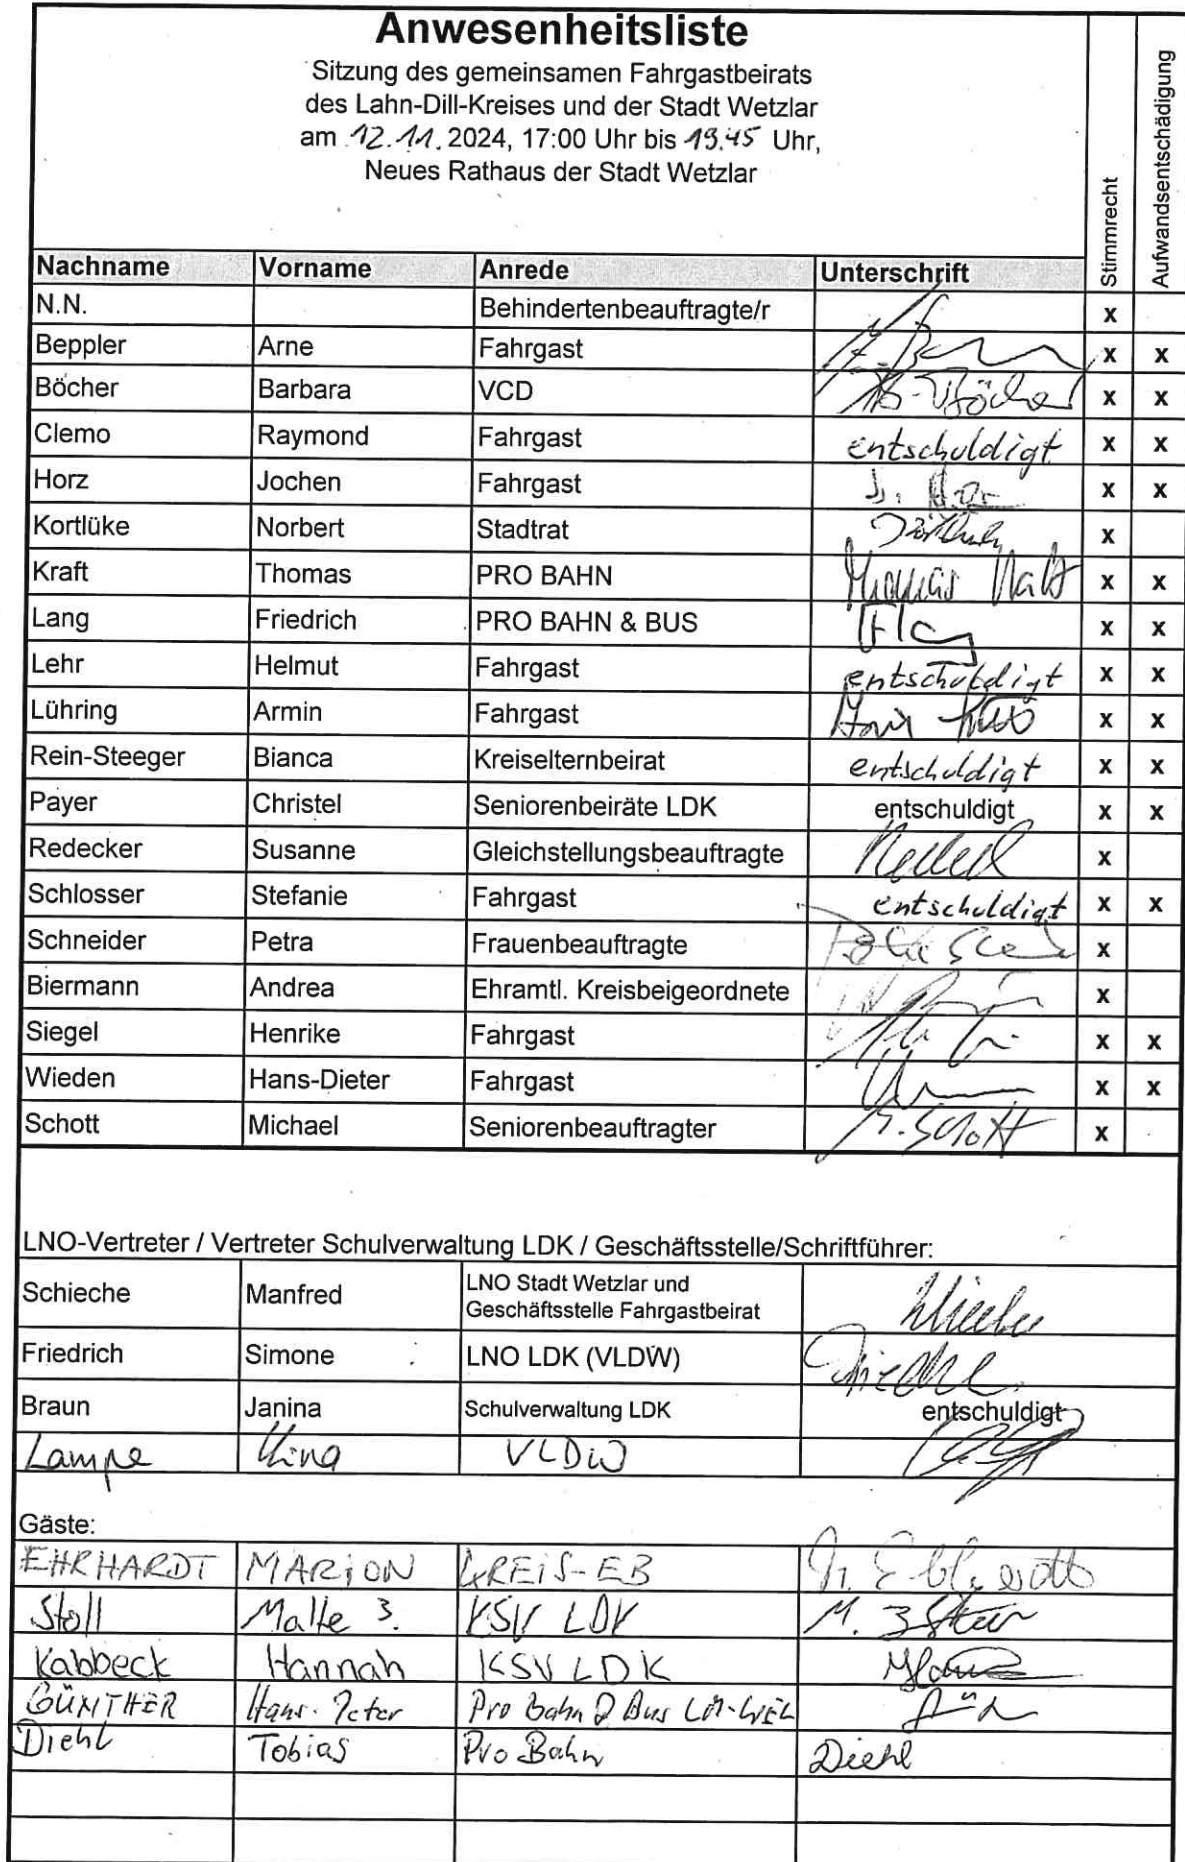 Anwesenheitsliste
Sitzung des gemeinsamen Fahrgastbeirats
des Lahn-Dill-Kreises und der Stadt Wetzlar
am 12.11.2024, 17:00 Uhr bis 19.45 Uhr,
Neues Rathaus der Stadt Wetzlar
Stimmrecht
Aufwandsentschädigung
Nachname Vorname Anrede Unterschrift
N.N. Behindertenbeauftragte/r x
Beppler Arne Fahrgast x x
Böcher Barbara VCD B. Böcher x x
Clemo Raymond Fahrgast entschuldigt x x
Horz Jochen Fahrgast x x
Kortlüke Norbert Stadtrat x
Kraft Thomas PRO BAHN Thomas Kraft x x
Lang Friedrich PRO BAHN & BUS x x
Lehr Helmut Fahrgast entschuldigt x x
Lühring Armin Fahrgast x x
Rein-Steeger Bianca Kreiselternbeirat entschuldigt x x
Payer Christel Seniorenbeiräte LDK entschuldigt x x
Redecker Susanne Gleichstellungsbeauftragte x
Schlosser Stefanie Fahrgast entschuldigt x x
Schneider Petra Frauenbeauftragte x
Biermann Andrea Ehramtl. Kreisbeigeordnete x
Siegel Henrike Fahrgast x x
Wieden Hans-Dieter Fahrgast x x
Schott Michael Seniorenbeauftragter M. Schott x
LNO-Vertreter / Vertreter Schulverwaltung LDK / Geschäftsstelle/Schriftführer:
Schieche Manfred LNO Stadt Wetzlar und
Geschäftsstelle Fahrgastbeirat
Friedrich Simone LNO LDK (VLDW)
Braun Janina Schulverwaltung LDK entschuldigt
Lampe VLDW
Gäste:
EHRHARDT MARION KREIS-EB M. Ehrhardt
Stoll Malte J. KSV LDK
Kabbeck Hannah KSV LDK
GÜNTHER Hans-Peter Pro Bahn & Bus LM-WEL
Diehl Tobias Pro Bahn Diehl